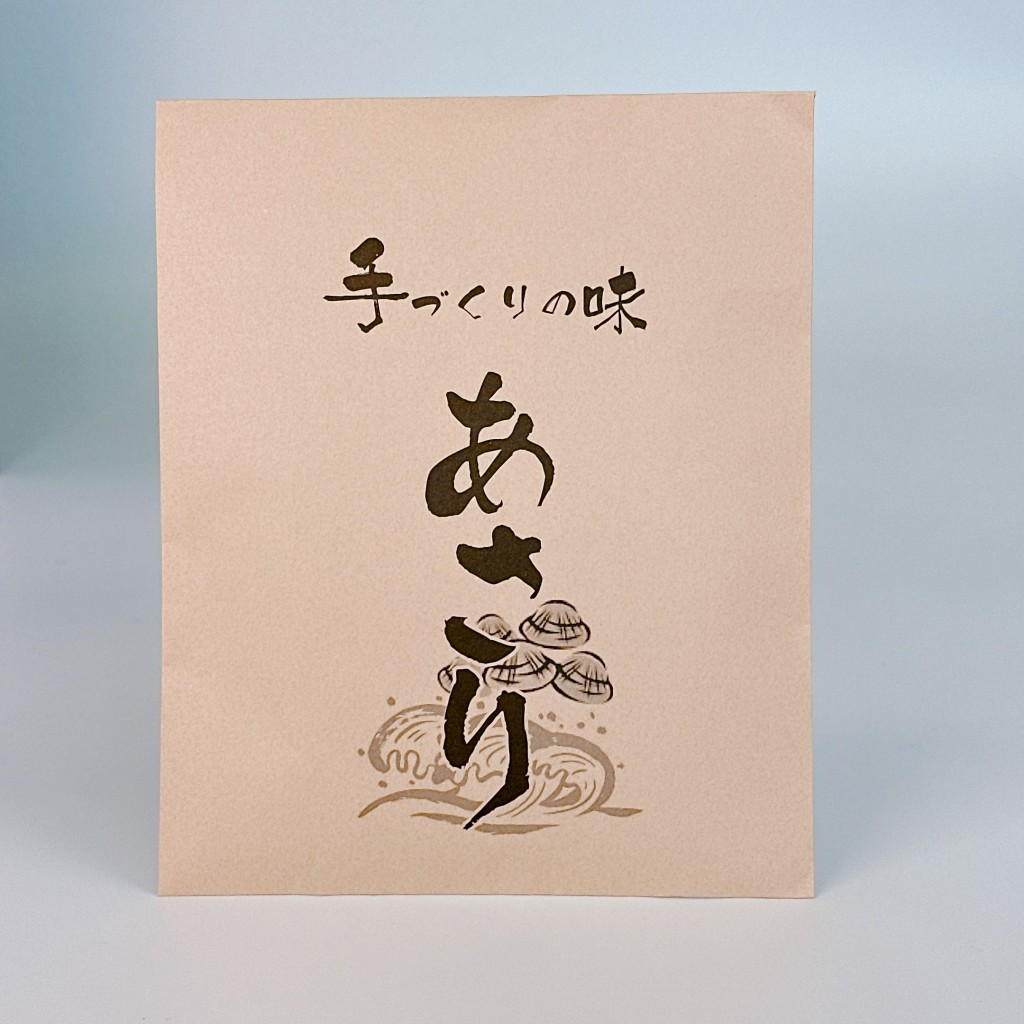 手づくりの味
あさり